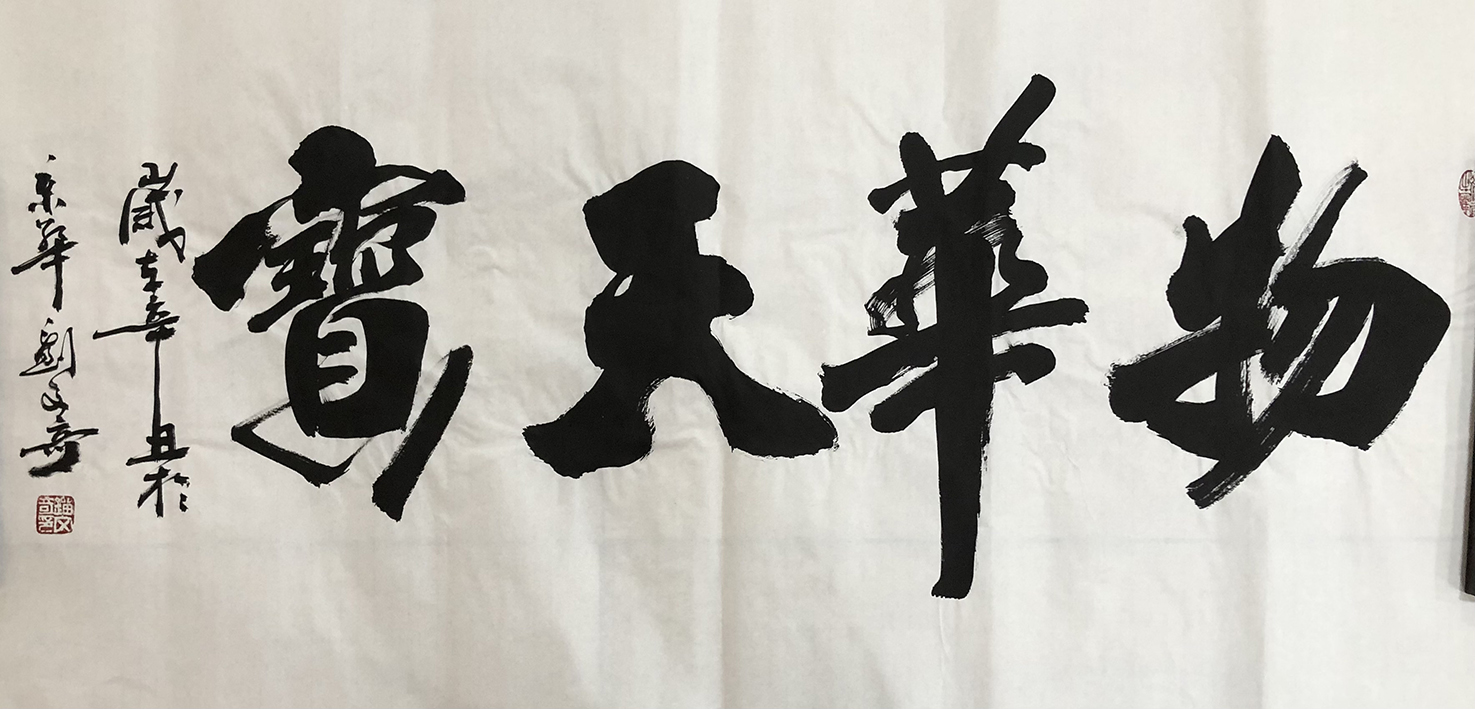 物華天寶
歲在辛丑於
京華劉文奇